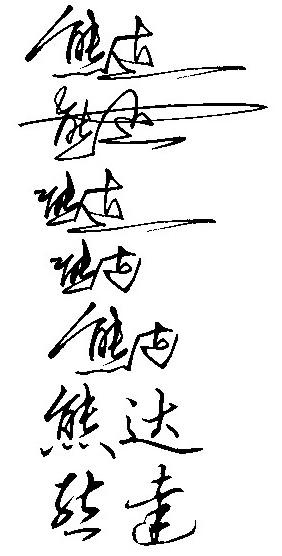 熊达
熊达
熊达
熊达
熊达
熊达
熊達